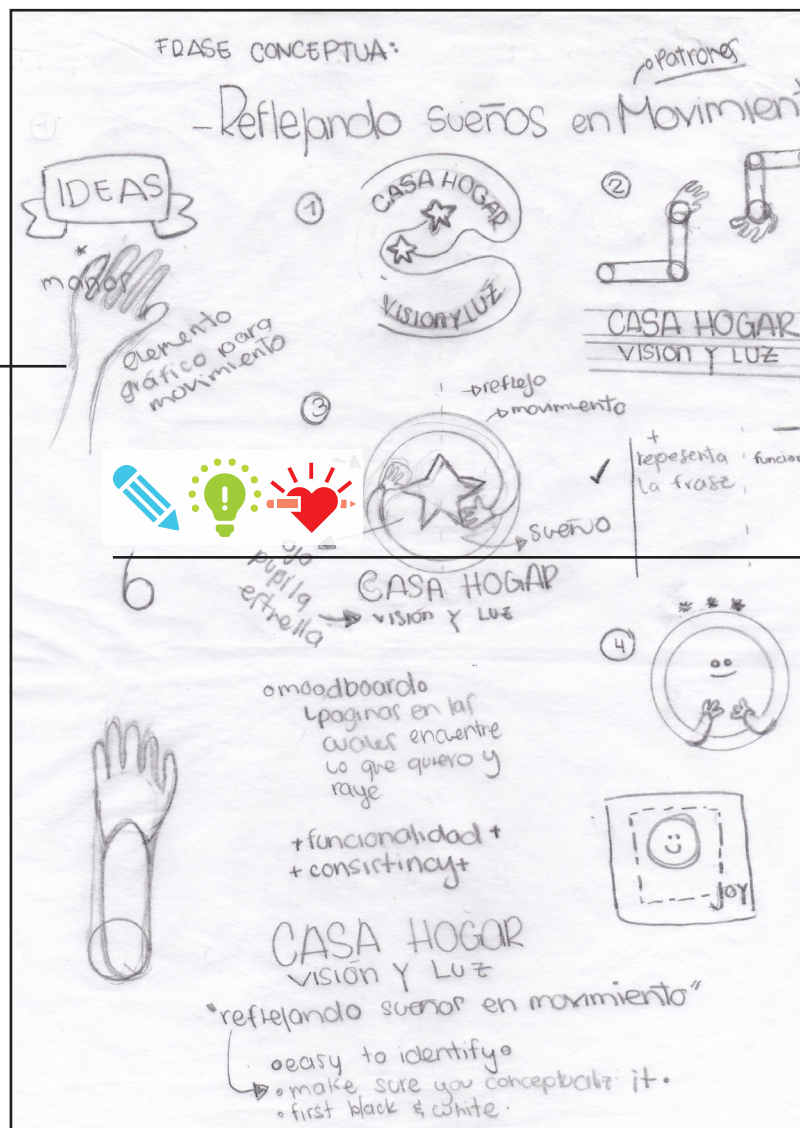 FRASE CONCEPTUA:
patrones
- Reflejando sueños en Movimient
IDEAS
*
manos
elemento
gráfico para
movimiento
1
CASA HOGAR
VISION Y LUZ
2
CASA HOGAR
VISION Y LUZ
3
reflejo
movimiento
+
repesenta
la frase
funcion
sueño
pupila
estrella
6
CASA HOGAR
VISIÓN Y LUZ
4
moodboard
paginas en las
cuales encuentre
lo que quiero y
raye
+funcionalidad+
+consistincy+
JOY
CASA HOGAR
VISIÓN Y LUZ
"reflejando sueños en movimiento"
easy to identify
make sure you conceptualiz it.
first black & white.